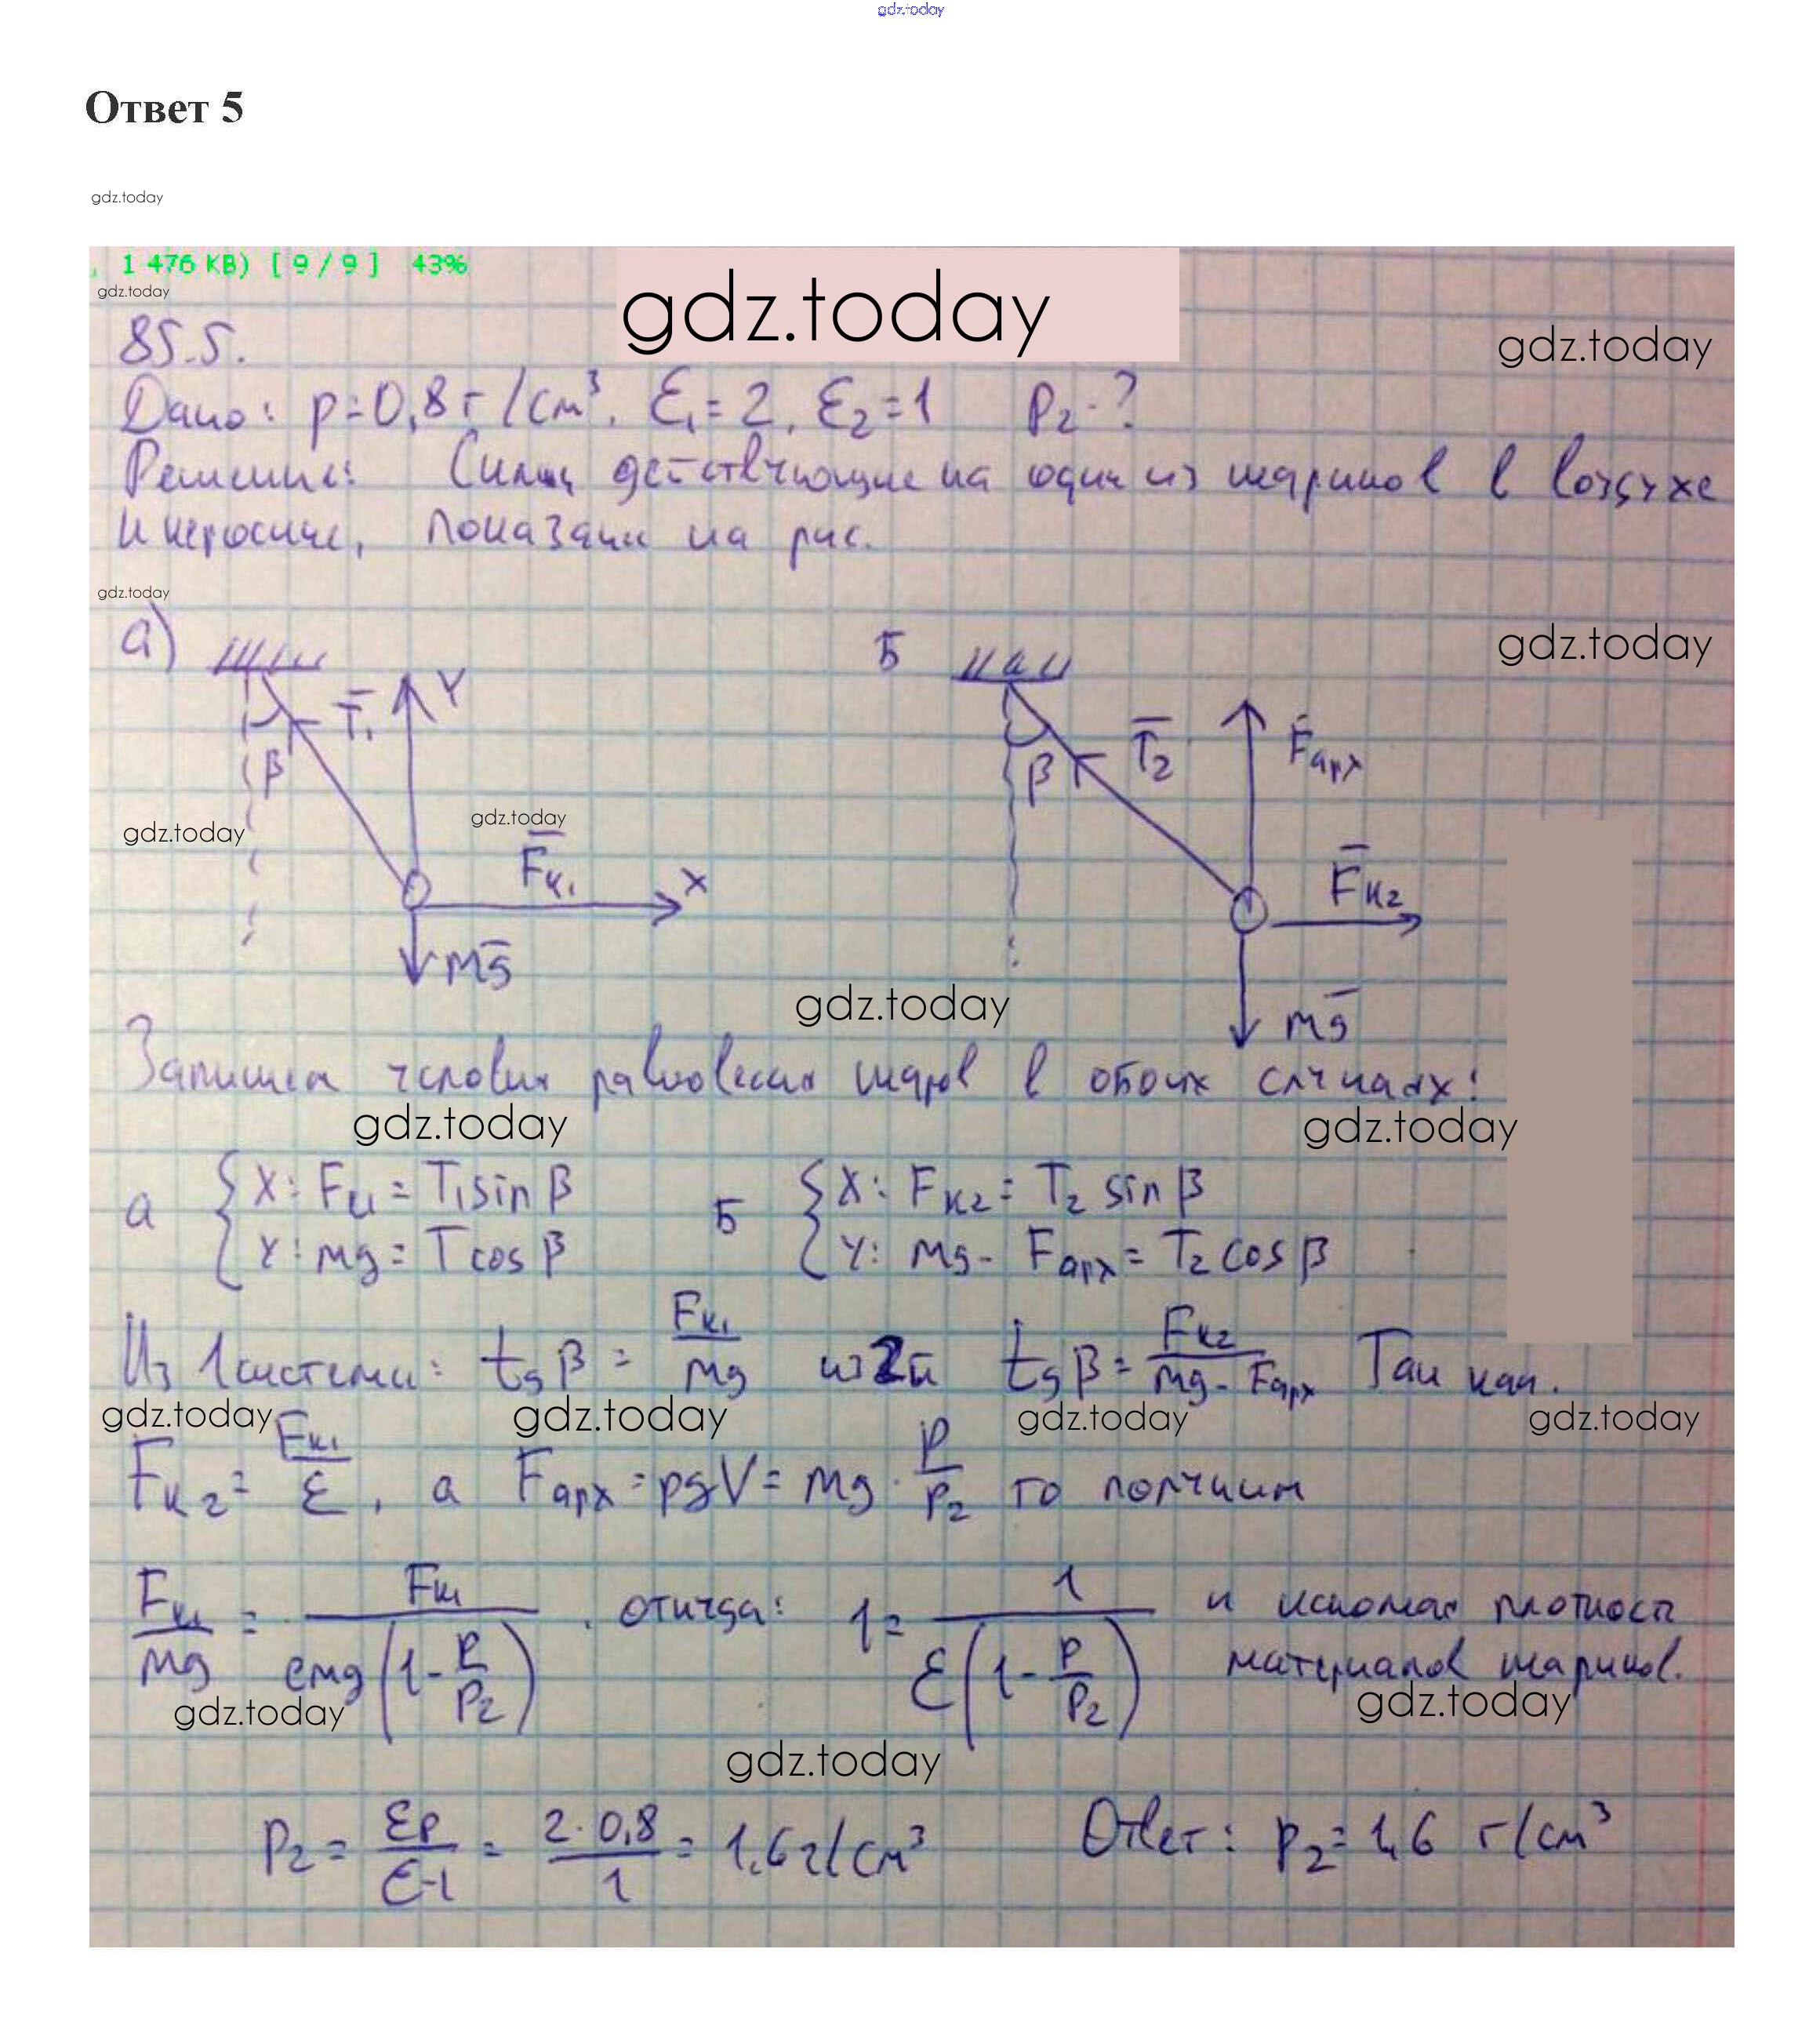 gdz.today
Ответ 5
gdz.today
, 1 476 KB) [ 9 / 9 ] 43%
gdz.today
gdz.today
gdz.today
85.5.
Дано: ρ=0,8 г/см³, ε₁=2, ε₂=1 ρ₂-?
Решение: Силы действующие на один из шариков в воздухе
и керосине, показаны на рис.
gdz.today
gdz.today
а) T̅₁ Y β F̅к₁ X mg̅
Б T̅₂ Fарх β F̅к₂ mg̅
gdz.today
gdz.today
gdz.today
Запишем условия равновесия шаров в обоих случаях:
gdz.today
gdz.today
а { X: Fк₁ = T₁sin β Б { X: Fк₂ = T₂ sin β
Y: mg = T cos β Y: mg - Fарх = T₂ cos β
Из 1 системы: tg β = Fк₁/mg из 2й tg β = Fк₂/(mg - Fарх) Так как.
gdz.today gdz.today gdz.today gdz.today
Fк₂ = Fк₁/ε, а Fарх = ρgV = mg · ρ/ρ₂ то получим
Fк₁/mg = Fк₁/(εmg(1 - ρ/ρ₂)). откуда: 1 = 1/(ε(1 - ρ/ρ₂)) и искомая плотность
материалов шариков.
gdz.today
gdz.today
gdz.today
ρ₂ = ερ/(ε-1) = 2·0,8/1 = 1,6 г/см³ Ответ: ρ₂ = 1,6 г/см³